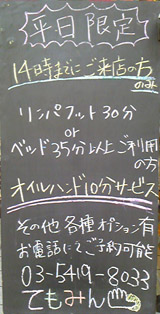 平日限定
14時までにご来店の方
のみ
リンパフット30分
or
ベッド35分以上ご利用
の方
オイルハンド10分サービス
その他各種オプション有
お電話にてご予約可能
03-5419-8033
てもみん